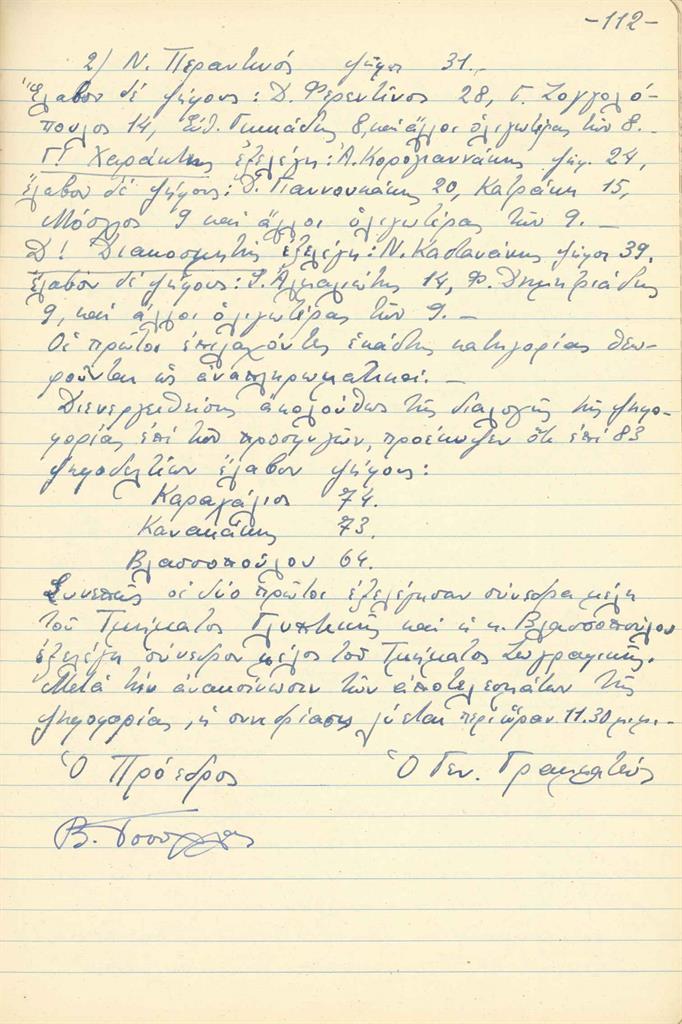 -112-
2) Ν. Περαντινός ψῆφοι 31.-
Ἔλαβον δέ ψήφους: Δ. Φερεντῖνος 28, Γ. Ζογγολό-
πουλος 14, 8, καί ἄλλοι ὀλιγωτέρας τῶν 8.-
Γ! Χαράκτης ἐξελέγη: Ἀ. Κορογιαννάκης ψηφ. 24,
ἔλαβον δέ ψήφους: Γιαννουκάκης 20, Κατράκη 15,
Μόσχος 9 καί ἄλλοι ὀλιγωτέρας τῶν 9.-
Δ! Διακοσμητής ἐξελέγη: Ν. Καστανάκης ψῆφοι 39.
ἔλαβον δέ ψήφους: 14, Φ. Δημητριάδης
9, καί ἄλλοι ὀλιγωτέρας τῶν 9.-
Οἱ πρῶτοι ἐπιλαχόντες ἑκάστης κατηγορίας θεω-
ροῦνται ὡς ἀναπληρωματικοί.-
Διενεργηθείσης ἀκολούθως τῆς διαλογῆς τῆς ψηφο-
φορίας ἐπί τῶν προσφυγῶν, προέκυψεν ὅτι ἐπί 83
ψηφοδελτίων ἔλαβον ψήφους:
Καραχάλιος 74.
Κανακάκης 73.
Βλασσοπούλου 64.
Συνεπῶς οἱ δύο πρῶτοι ἐξελέγησαν σύνεδρα μέλη
τοῦ Τμήματος Γλυπτικῆς καί ἡ κ. Βλασσοπούλου
ἐξελέγη σύνεδρον μέλος τοῦ Τμήματος Ζωγραφικῆς.
Μετά τήν ἀνακοίνωσιν τῶν ἀποτελεσμάτων τῆς
ψηφοφορίας, ἡ συνεδρίασις λύεται περί ὥραν 11.30 μ.μ.-
Ὁ Πρόεδρος Ὁ Γεν. Γραμματεύς